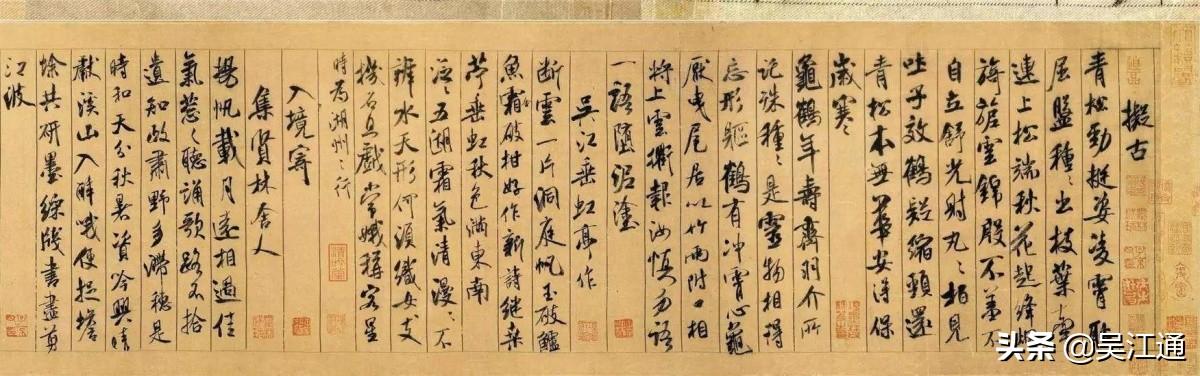 擬古
青松勁挺姿凌霄恥
屈盤種々出枝葉牽
連上松端秋花起絳煙
旖旎雲錦殷不羞不
自立舒光射丸々柏見
吐子效鶴疑縮頸還
青松本無華安得保
歲寒
龜鶴年壽齊羽介所
託殊種々是靈物相得
忘形軀鶴有沖霄心龜
厭曳尾居以竹兩附口相
將上雲衢報汝慎勿語
一語墮泥塗
吳江垂虹亭作
断雲一片洞庭帆玉破鱸
魚霜破柑好作新詩继桑
苧垂虹秋色滿東南
泛々五湖霜氣清漫々不
辨水天形何須織女支
機石且戲常娥稱客星
時為湖州之行
入境寄
集賢林舍人
揚帆載月遠相過佳
氣葱々聽誦歌路不拾
遺知政肅野多滯穗是
時和天分秋暑資吟興晴
獻溪山入醉哦便捉蟾
蜍共研墨綵牋書盡剪
江波
头条 @吴江通